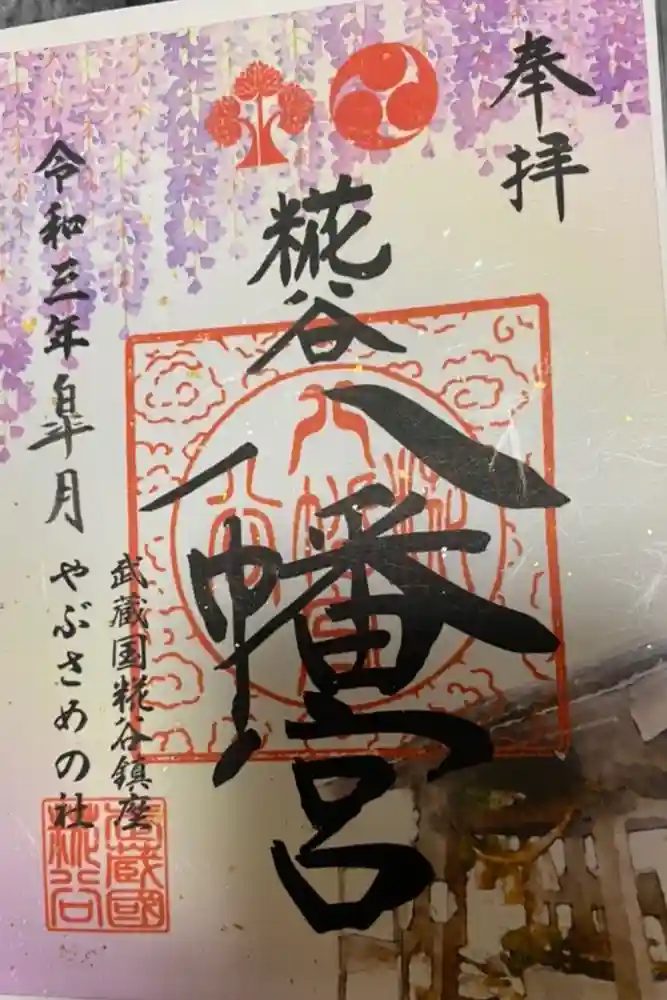 奉拝
糀谷
八幡宮
武蔵国糀谷鎮座
やぶさめの社
令和三年皐月
武蔵國
糀谷